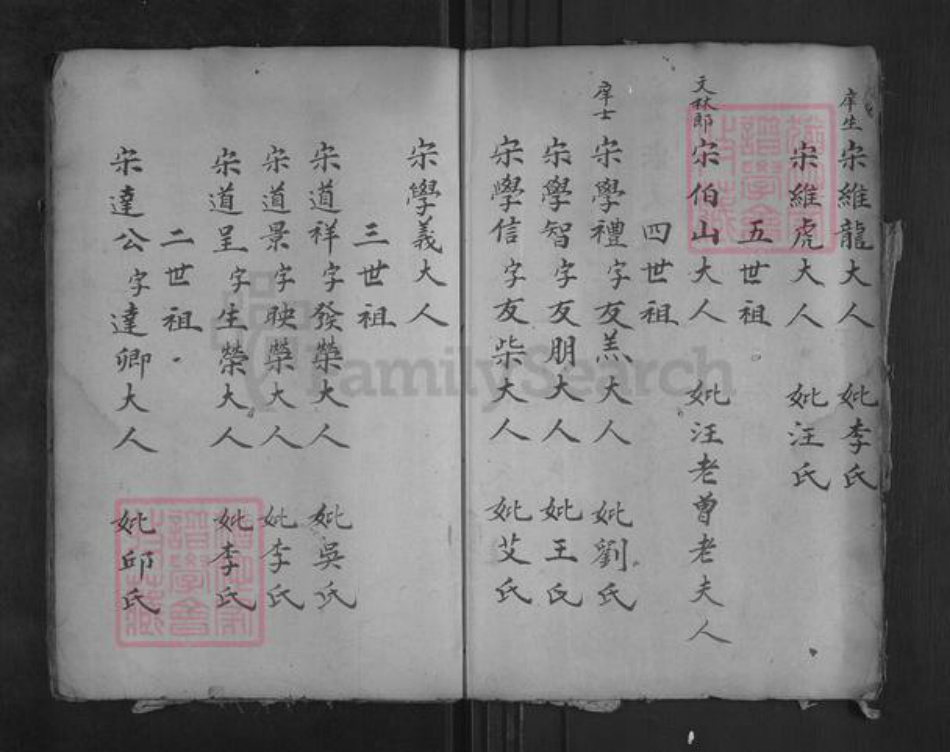 庠生 宋維龍大人 妣李氏
宋維虎大人 妣汪氏
五世祖
文林郎 宋伯山大人 妣汪老曾老夫人
四世祖
庠士 宋學禮字友羔大人 妣劉氏
宋學智字友朋大人 妣王氏
宋學信字友柴大人 妣艾氏
宋學義大人
三世祖
宋道祥字發榮大人 妣吳氏
宋道景字映榮大人 妣李氏
宋道呈字生榮大人 妣李氏
二世祖
宋達公字達卿大人 妣邱氏
FamilySearch